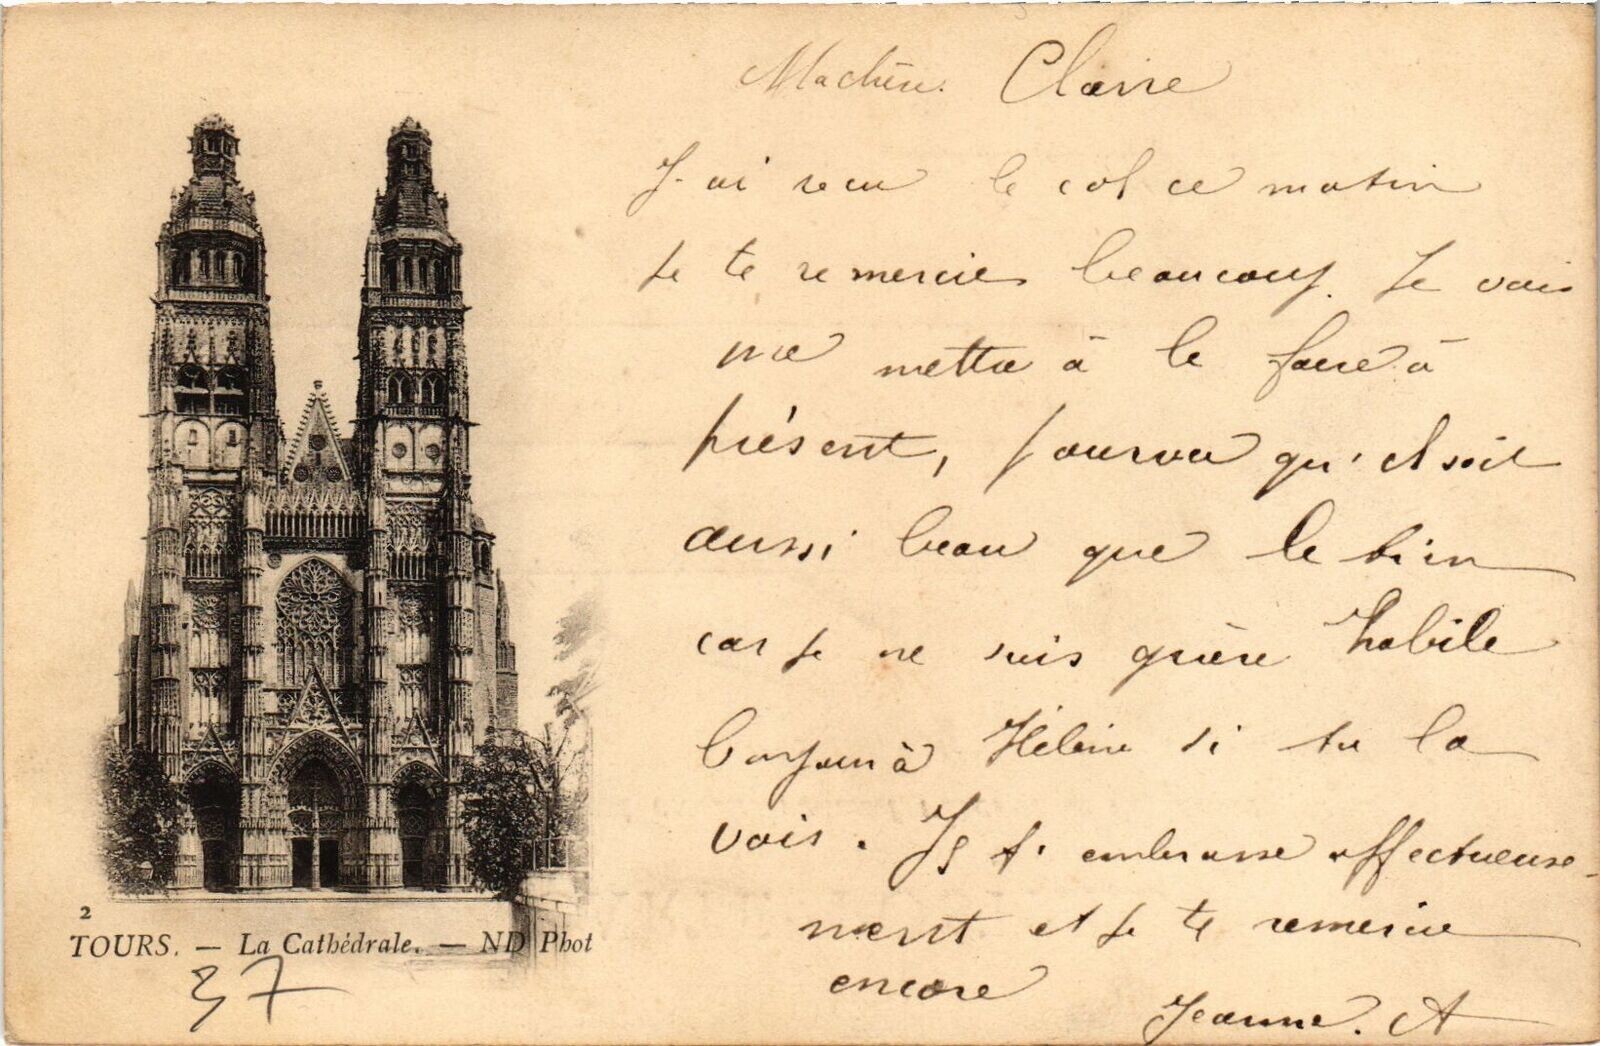 Ma chère Claire
J'ai recu le col ce matin
Je te remercie beaucoup. Je vais
me mettre à le faire à
présent, pourvu qu'il soit
aussi beau que le tien
car je ne suis guère habile
Bonjour à Hélène si tu la
vois. Je t'embrasse affectueuse-
ment et je te remercie
encore
Jeanne. A
2
TOURS. — La Cathédrale. — ND Phot
37